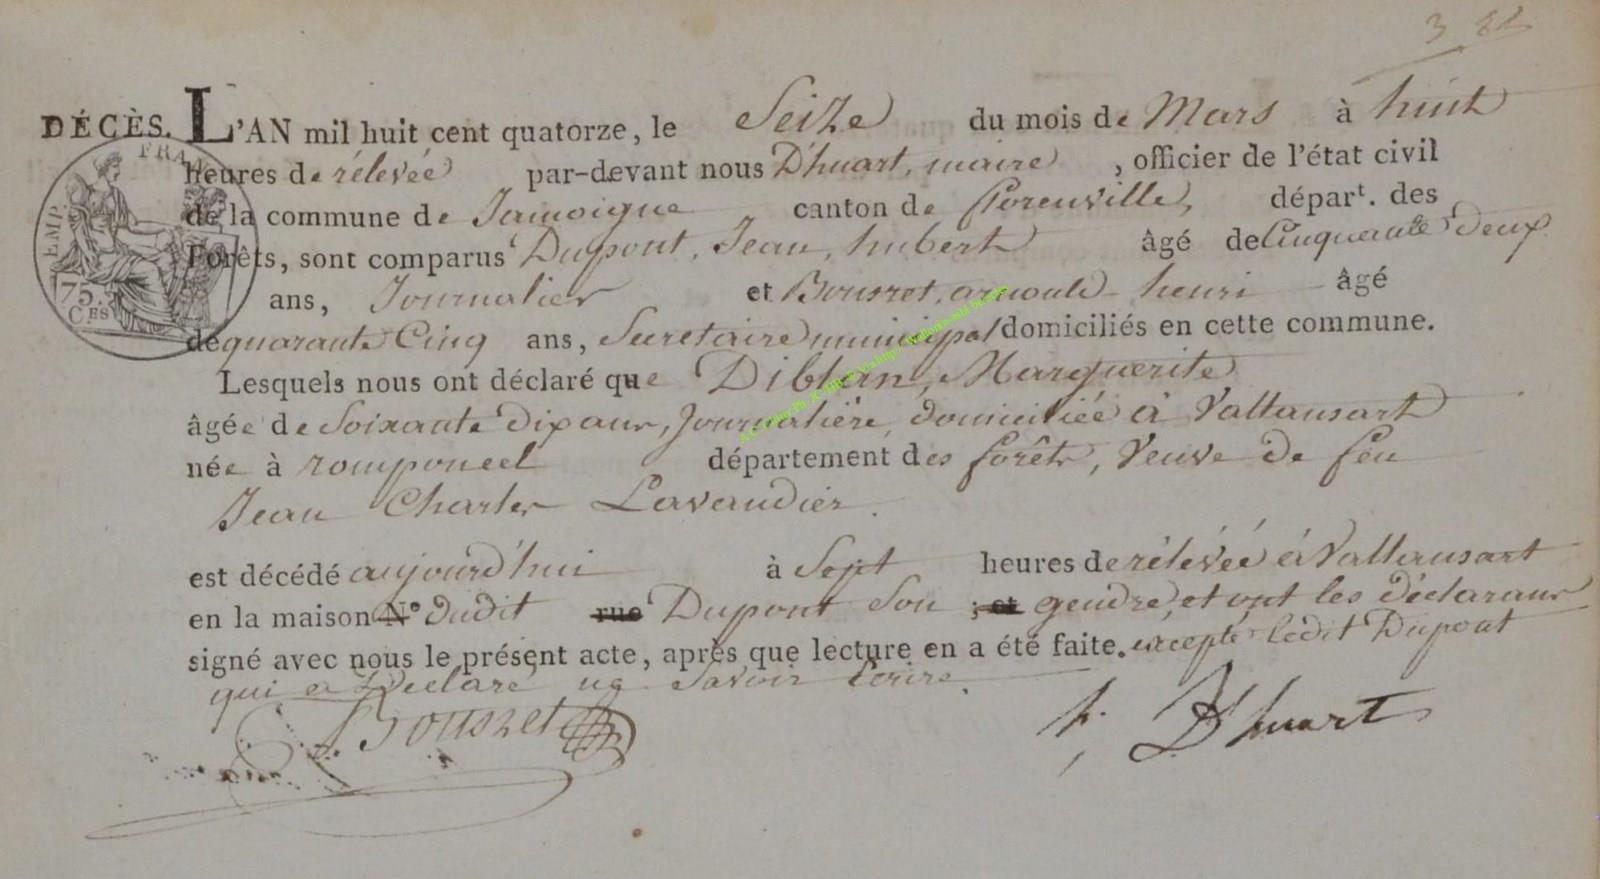 3
DÉCÈS. L'AN mil huit cent quatorze, le Seize du mois de Mars à huit
heures de rélevée par-devant nous D'huart, maire, officier de l'état civil
de la commune de Jamoigne canton de florenville, départ. des
Forêts, sont comparus Dupont, Jean, hubert âgé de Cinquante deux
ans, Journalier et Bousret, arnould henri âgé
de quarante Cinq ans, Secretaire municipal domiciliés en cette commune.
Lesquels nous ont déclaré que Diblan, Marguerite
âgée de Soixante Dix ans, Journalière, domiciliée à Vallansart
née à romponcel département des forêts, Veuve de feu
Jean Charles Lavaudier.
est décédé aujourd'hui à Sept heures de rélévée à Vallansart
en la maison N° dudit rue Dupont Son ; et gendre, et ont les déclarans
signé avec nous le présent acte, après que lecture en a été faite. excepté ledit Dupont
qui a Déclaré ne Savoir Ecrire.
Bousret
f. D'huart
FRAN
EMP.
75.
C.ES